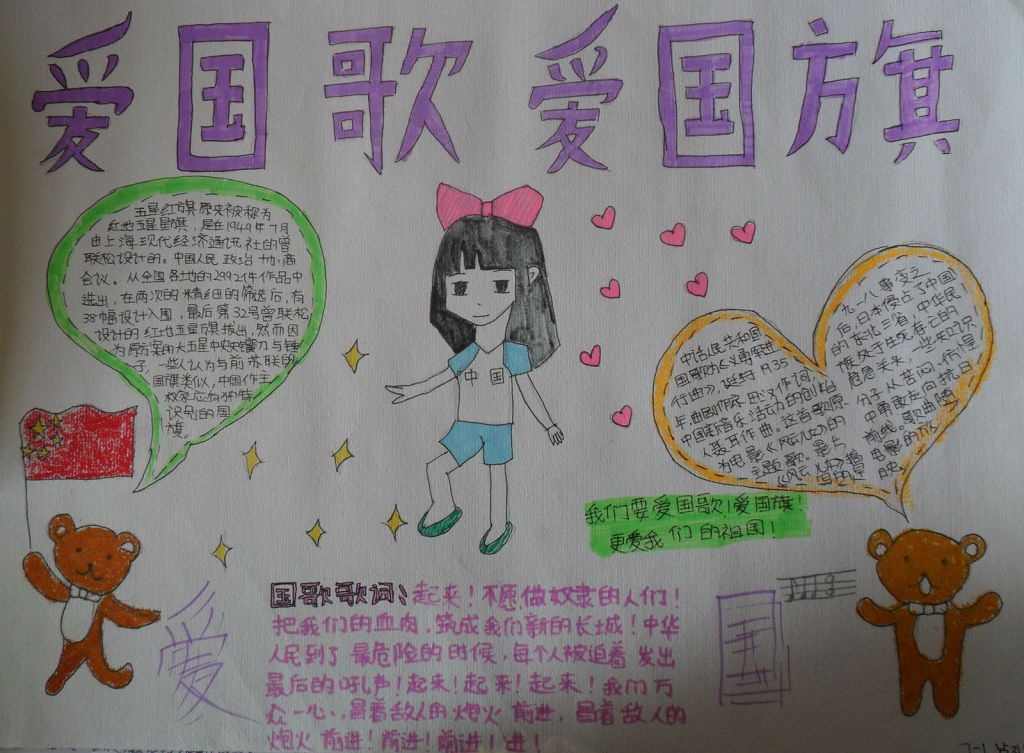 爱国歌爱国旗
五星红旗原来被称为
红地五星旗，是在1949年7月
由上海现代经济通讯社的曾
联松设计的。中国人民政治协商
会议。从全国各地的2992件作品中
选出，在两次的精细的筛选后，有
38幅设计入围，最后第32号曾联松
设计的红地五星旗拔出，然而因
为原方案的大五星中央镰刀与锤
子，一些人认为与前苏联的
国旗类似，中国作主
权家应有独特
识别的国
旗。
中国
中话人民共和国
国歌为《义勇军进
行曲》，诞生于1935
年，由剧作家田汉作词，
中国新音乐活动的创始
人聂耳作曲。这首歌原
为电影《风云儿女》的
主题歌。影上
《风云儿女》描
九一八事变之
后，日本侵占了中国
的东北三省，中华民
族处于生死存亡的
危急关头，一些知识
分子从苦闷、彷徨
中勇敢走向抗日
前线。歌曲随
电影的放
映
我们要爱国歌！爱国旗！
更爱我们的祖国！
国歌歌词：起来！不愿做奴隶的人们！
把我们的血肉，筑成我们新的长城！中华
人民到了最危险的时候，每个人被迫着发出
最后的吼声！起来！起来！起来！我们万
众一心，冒着敌人的炮火前进，冒着敌人的
炮火前进！前进！前进！进！
爱
国
7-1